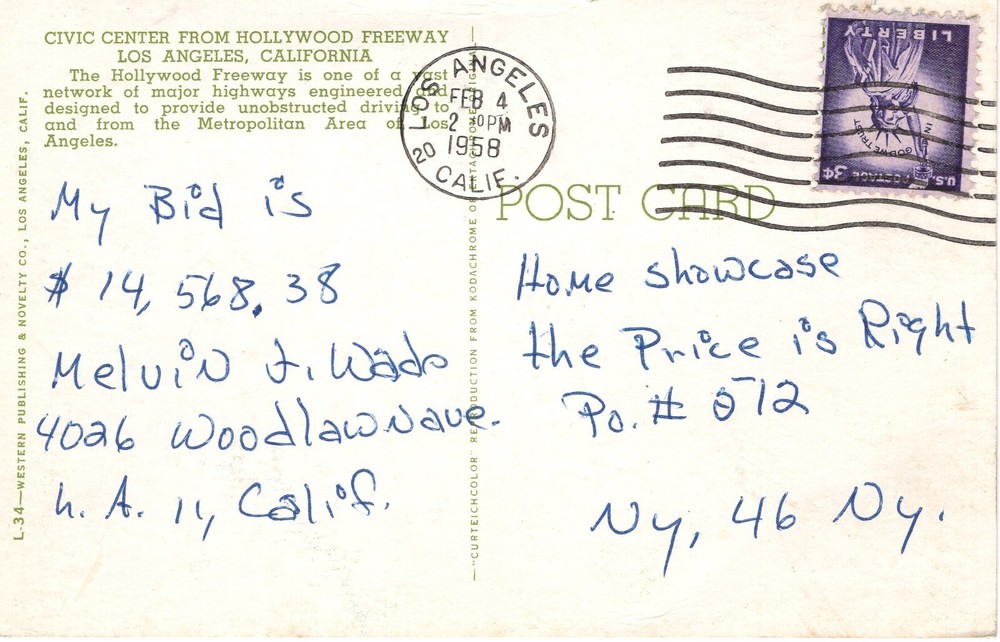 CIVIC CENTER FROM HOLLYWOOD FREEWAY
LOS ANGELES, CALIFORNIA
The Hollywood Freeway is one of a vast
network of major highways engineered and
designed to provide unobstructed driving to
and from the Metropolitan Area of Los
Angeles.
L-34—WESTERN PUBLISHING & NOVELTY CO., LOS ANGELES, CALIF.
My Bid is
$ 14,568.38
Melvin J. Wado
4026 Woodlawn ave.
L. A. 11, Calif.
"CURTEICHCOLOR" REPRODUCTION FROM KODACHROME
LOS ANGELES
FEB 4
2 PM
1958
20
CALIF.
POST CARD
U.S. POSTAGE 3¢
IN GOD WE TRUST
LIBERTY
Home showcase
the Price is Right
Po. # 572
Ny, 46 Ny.